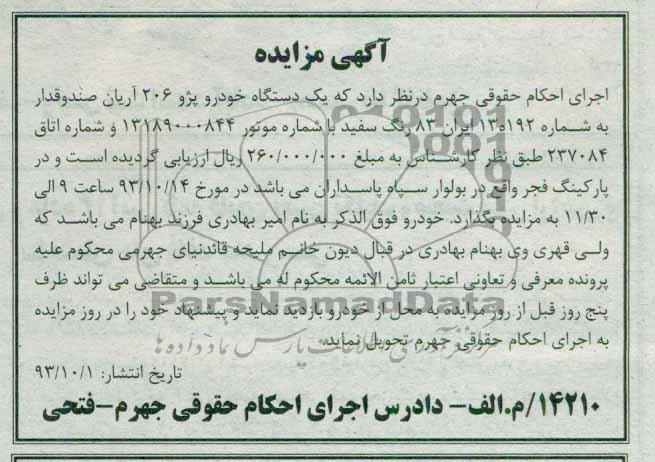 آگهی مزایده
اجرای احکام حقوقی جهرم درنظر دارد که یک دستگاه خودرو پژو ۲۰۶ آریان صندوقدار
به شماره ۱۹۲ه۱۲ ایران ۸۳ رنگ سفید با شماره موتور ۱۳۱۸۹۰۰۰۸۴۴ و شماره اتاق
۲۳۷۰۸۴ طبق نظر کارشناس به مبلغ ۲۶۰/۰۰۰/۰۰۰ ریال ارزیابی گردیده است و در
پارکینگ فجر واقع در بولوار سپاه پاسداران می باشد در مورخ ۹۳/۱۰/۱۴ ساعت ۹ الی
۱۱/۳۰ به مزایده بگذارد. خودرو فوق الذکر به نام امیر بهادری فرزند بهنام می باشد که
ولی قهری وی بهنام بهادری در قبال دیون خانم ملیحه قائدنیای جهرمی محکوم علیه
پرونده معرفی و تعاونی اعتبار ثامن الائمه محکوم له می باشد و متقاضی می تواند ظرف
پنج روز قبل از روز مزایده به محل از خودرو بازدید نماید و پیشنهاد خود را در روز مزایده
به اجرای احکام حقوقی جهرم تحویل نماید.
تاریخ انتشار: ۹۳/۱۰/۱
۱۴۲۱۰/م.الف- دادرس اجرای احکام حقوقی جهرم-فتحی
ParsNamadData